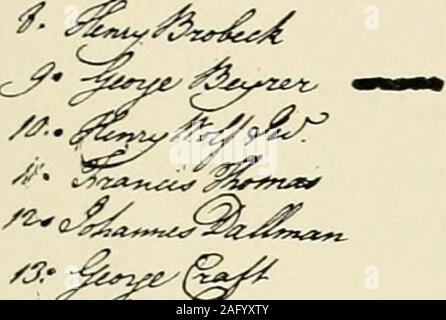 8. Henry Brobeck
9. George Beyrer
10. Henry Wolf Jur.
11. Francis Thomas
12. Johannes Dallman
13. George Craft
alamy
2AFYXTY